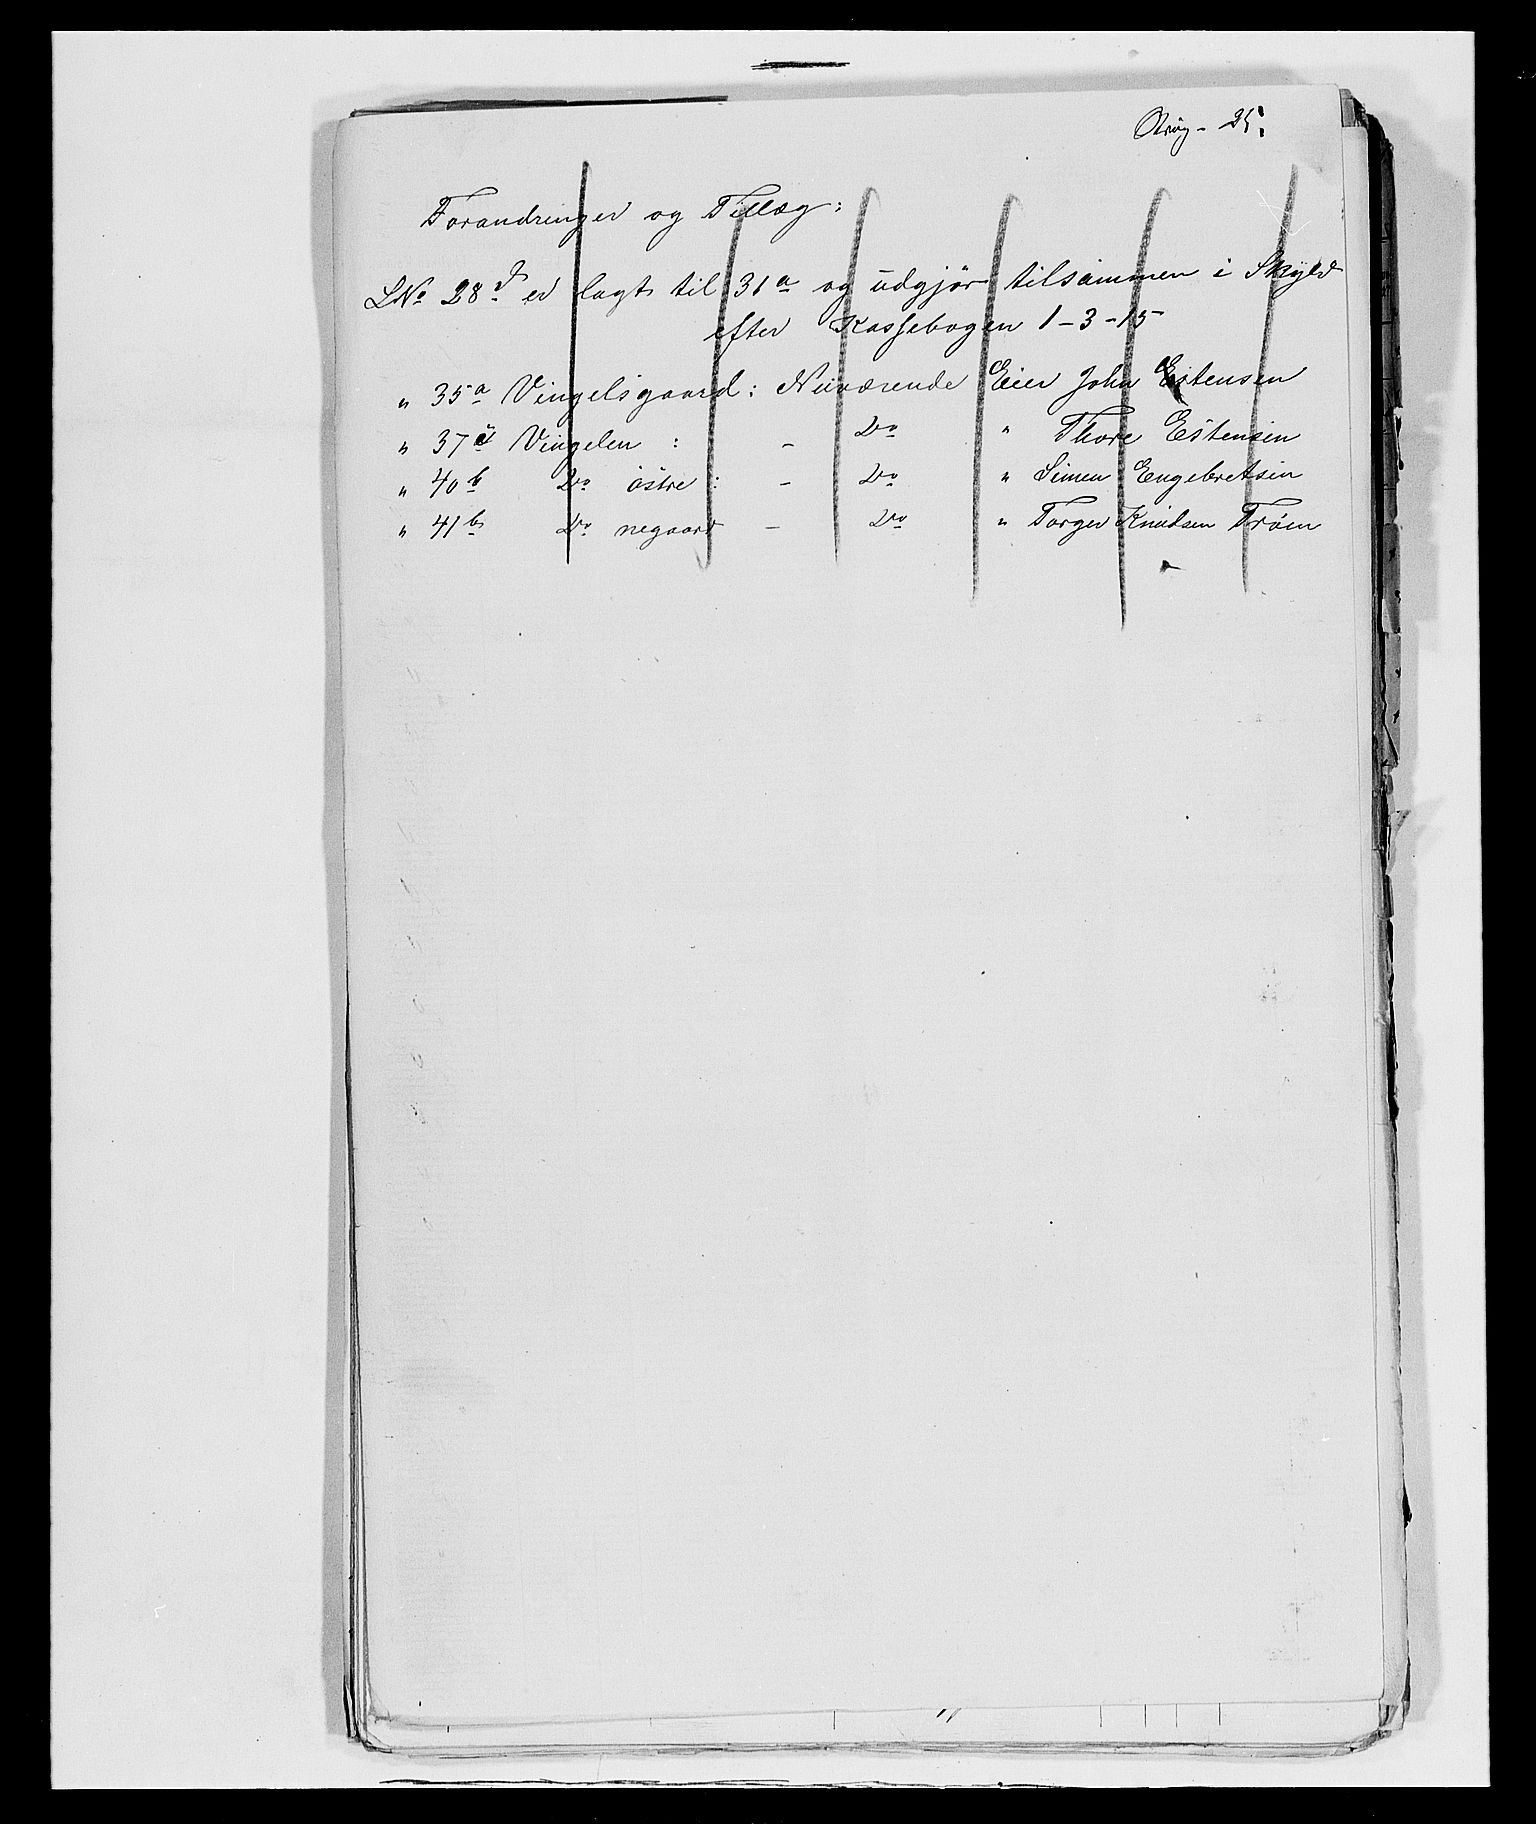 25.
Forandringer og Tillæg:
LNo 28d er lagt til 31a og udgjör tilsammen i Skyld
efter Kassebogen 1-3-15
" 35a Vingelsgaard: Nuværende Eier John Estensen
" 37c Vingelen : - Do " Thore Estensen
" 40b Do östre : - Do " Simen Engebretsen
" 41b Do negaard - Do " Torger Knudsen Tröen